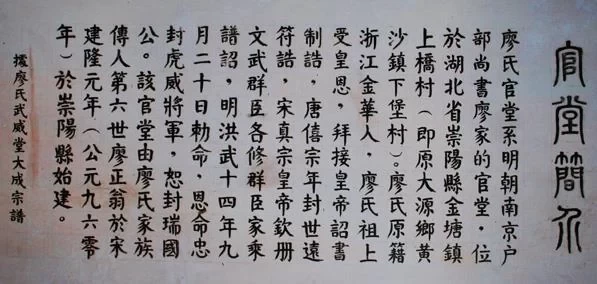 官堂簡介
廖氏官堂系明朝南京戶
部尚書廖家的官堂，位
於湖北省崇陽縣金塘鎮
上橋村（即原大源鄉黄
沙鎮下堡村）。廖氏原籍
浙江金華人，廖氏祖上
受皇恩，拜接皇帝詔書
制誥，唐僖宗年封世遠
符誥，宋真宗皇帝欽册
文武群臣各修群臣家乘
譜詔，明洪武十四年九
月二十日勅命，恩命忠
封虎威將軍，恕封瑞國
公。該官堂由廖氏家族
傳人第六世廖正翁於宋
建隆元年（公元九六零
年）於崇陽縣始建。
據廖氏武威堂大成宗譜